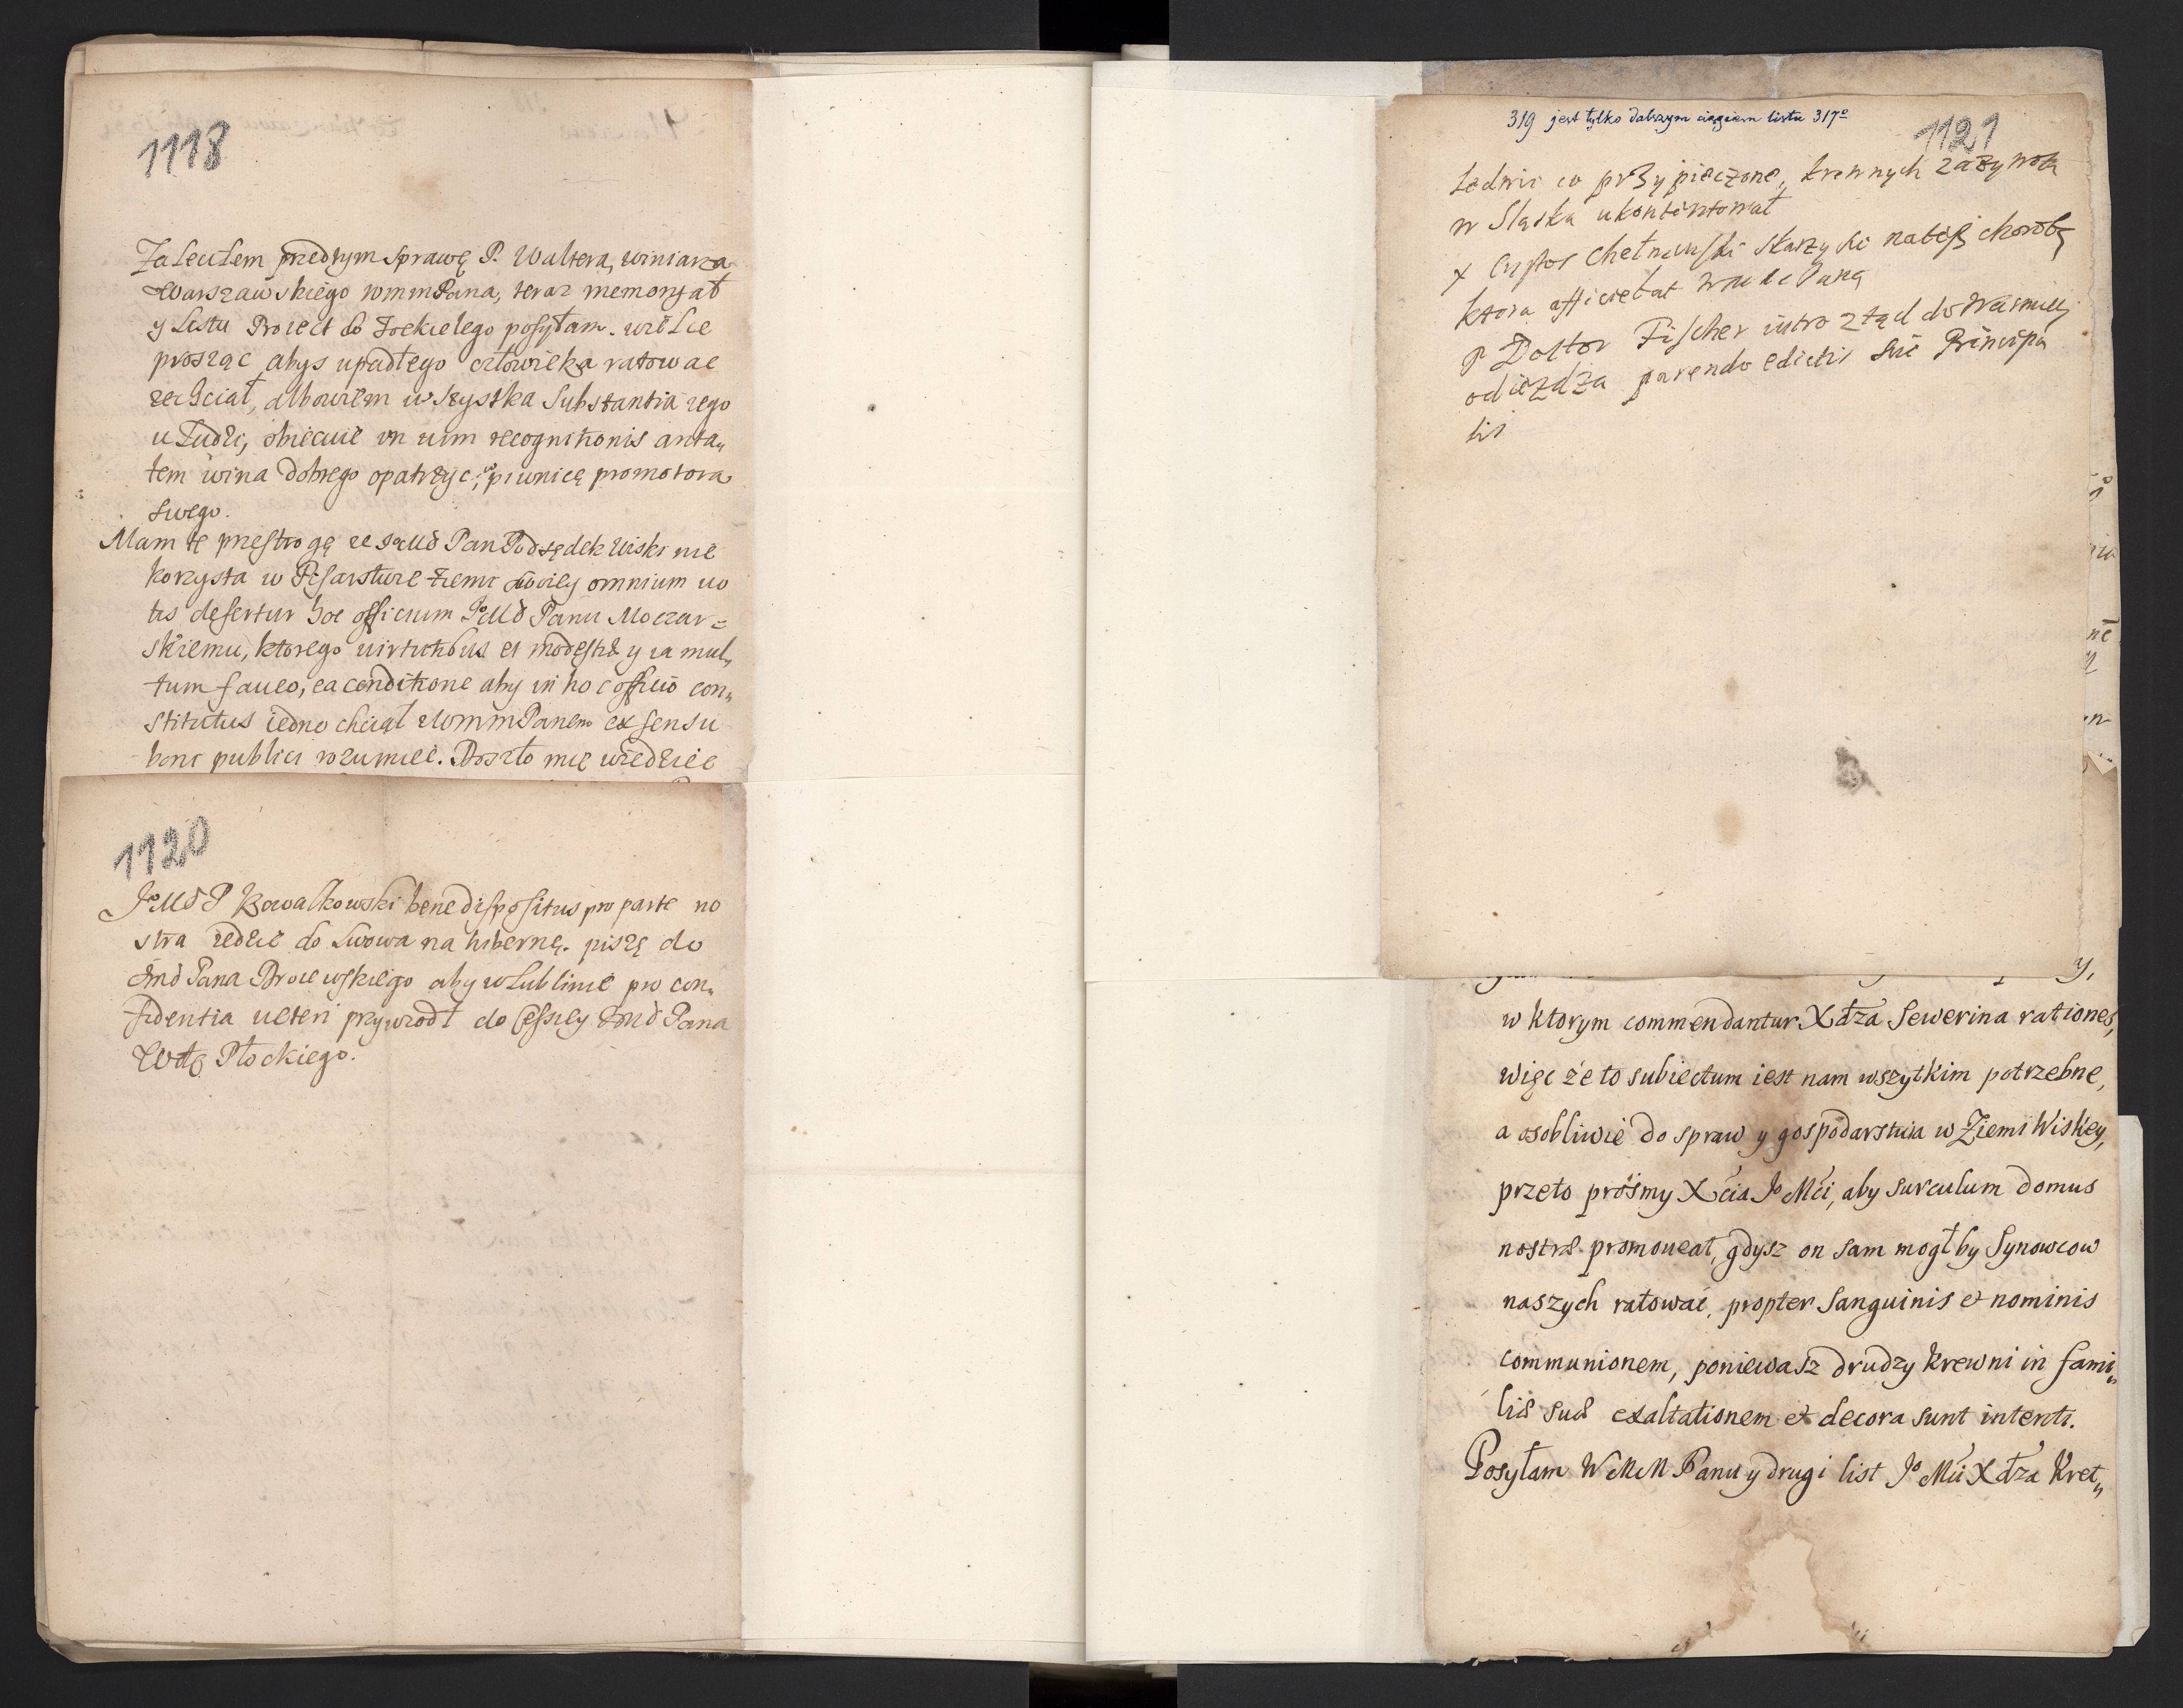 1118
Zaleciłem przedtym sprawę P. Waltera, winiarza
Warszawskiego wmmPana, teraz memoryał
y Listu Proiect do posyłam. wielce
prosząc abys upadłego człowieka ratowac
zechciał, albowiem wszystka Substantia iego
u Ludzi, obiecuie on uim recognitionis anta„
łem wina dobrego opatrzyc, piwnicę promotora
swego.
Mam te przestrogę ze Pan Podsędek Wiski nie
korzysta w Pisarstwie Ziemi omnium uo
tis defertur hoc officium JoMć Panu Moczar=
skiemu, ktorego uirtutibus et modestiæ y ia mul„
tum faueo, ea conditione aby in hoc officio con„
stitutus iedno chciał z WommPanem ex sensu
boni publici rozumiec. Doszło mie wiedziec
1120
JoMć P Kowalkowski bene dispositus pro parte no
stra iedzie do Lwowa na hibernę. piszę do
Jmć Pana aby w Lublinie pro con„
fidentia ueteri przywiodł do Cessiey Jmć Pana
Wdę Płockiego.
319 jest tylko dalszym ciągiem listu 317o
1121
Ledwie co przypieczone, krewnych
w Sląsku ukontentował
x Custos Chełmiński Skarzyski na tęsz chorobę
ktora afficiebat Pana
P Doktor Fischer iutro ztąd do
odiezdza parendo edictis sui Principa
lis
y,
w ktorym commendantur Xdza Sewerina rationes,
więc że to subiectum iest nam wszytkim potrzebne,
a osobliwie do spraw y gospodarstwa w Ziemi Wiskey,
przeto prośmy Xcia Jo Mći, aby surculum domus
nostræ promoueat, gdysz on sam mogł by Synowcow
naszych ratować, propter Sanguinis et nominis
communionem, poniewasz drudzy krewni in fami„
liæ suæ exaltationem et decora sunt intenti.
Posyłam WMM Panu y drugi list Jo Mći Xdza Kret„